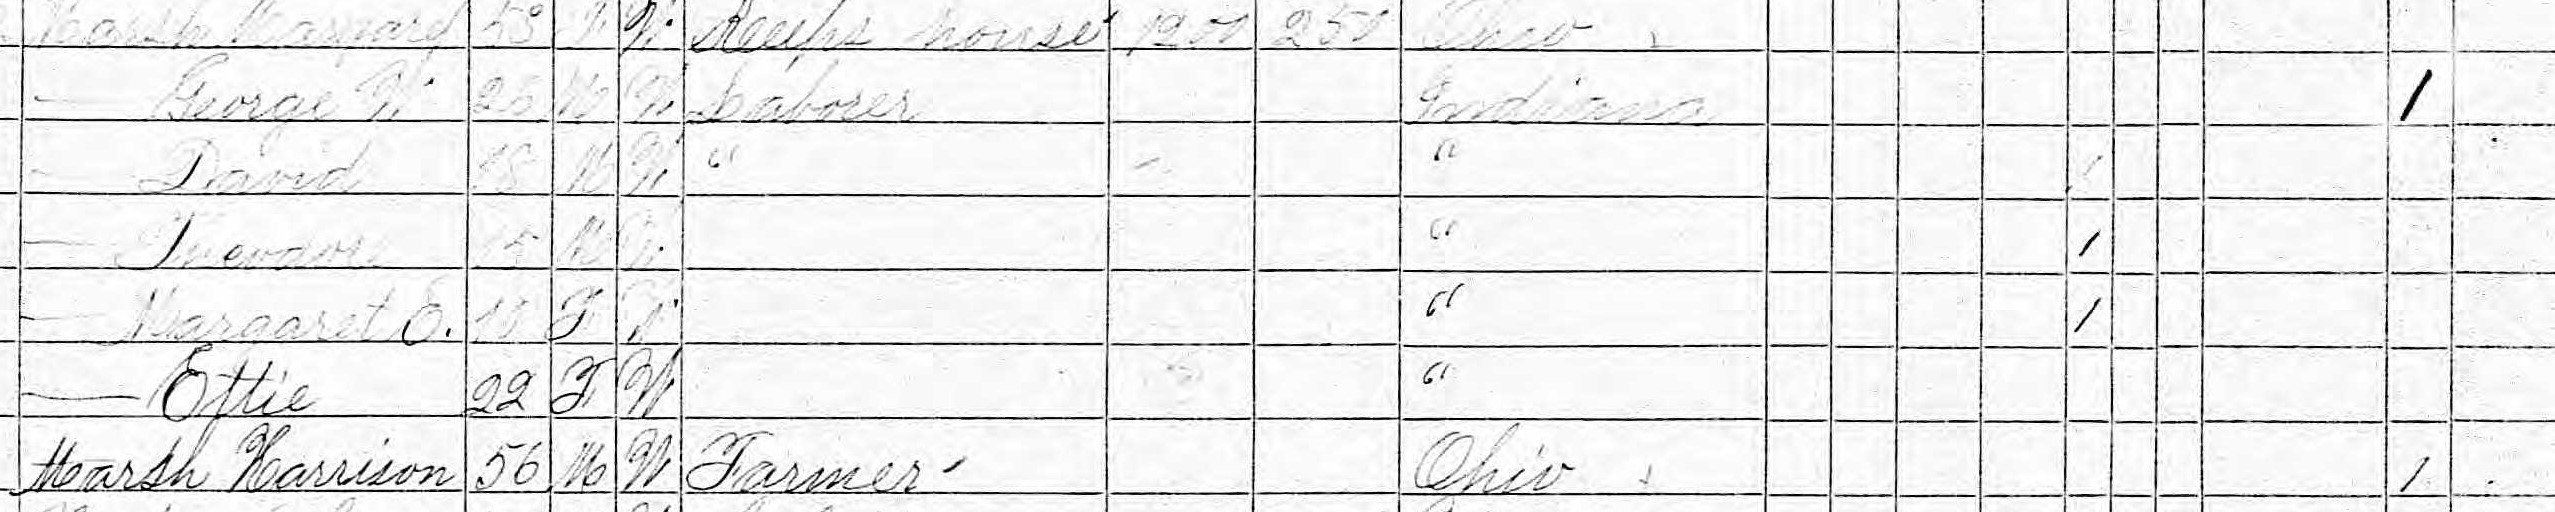 Marsh Margaret 58 F W Keeps house 1200 250 Ohio
— George W. 26 M W Laborer Indiana 1
— David 18 M W " " 1
— 15 M W " 1
— Margaret E. 10 F W " 1
— Effie 22 F W "
Marsh Harrison 56 M W Farmer Ohio 1